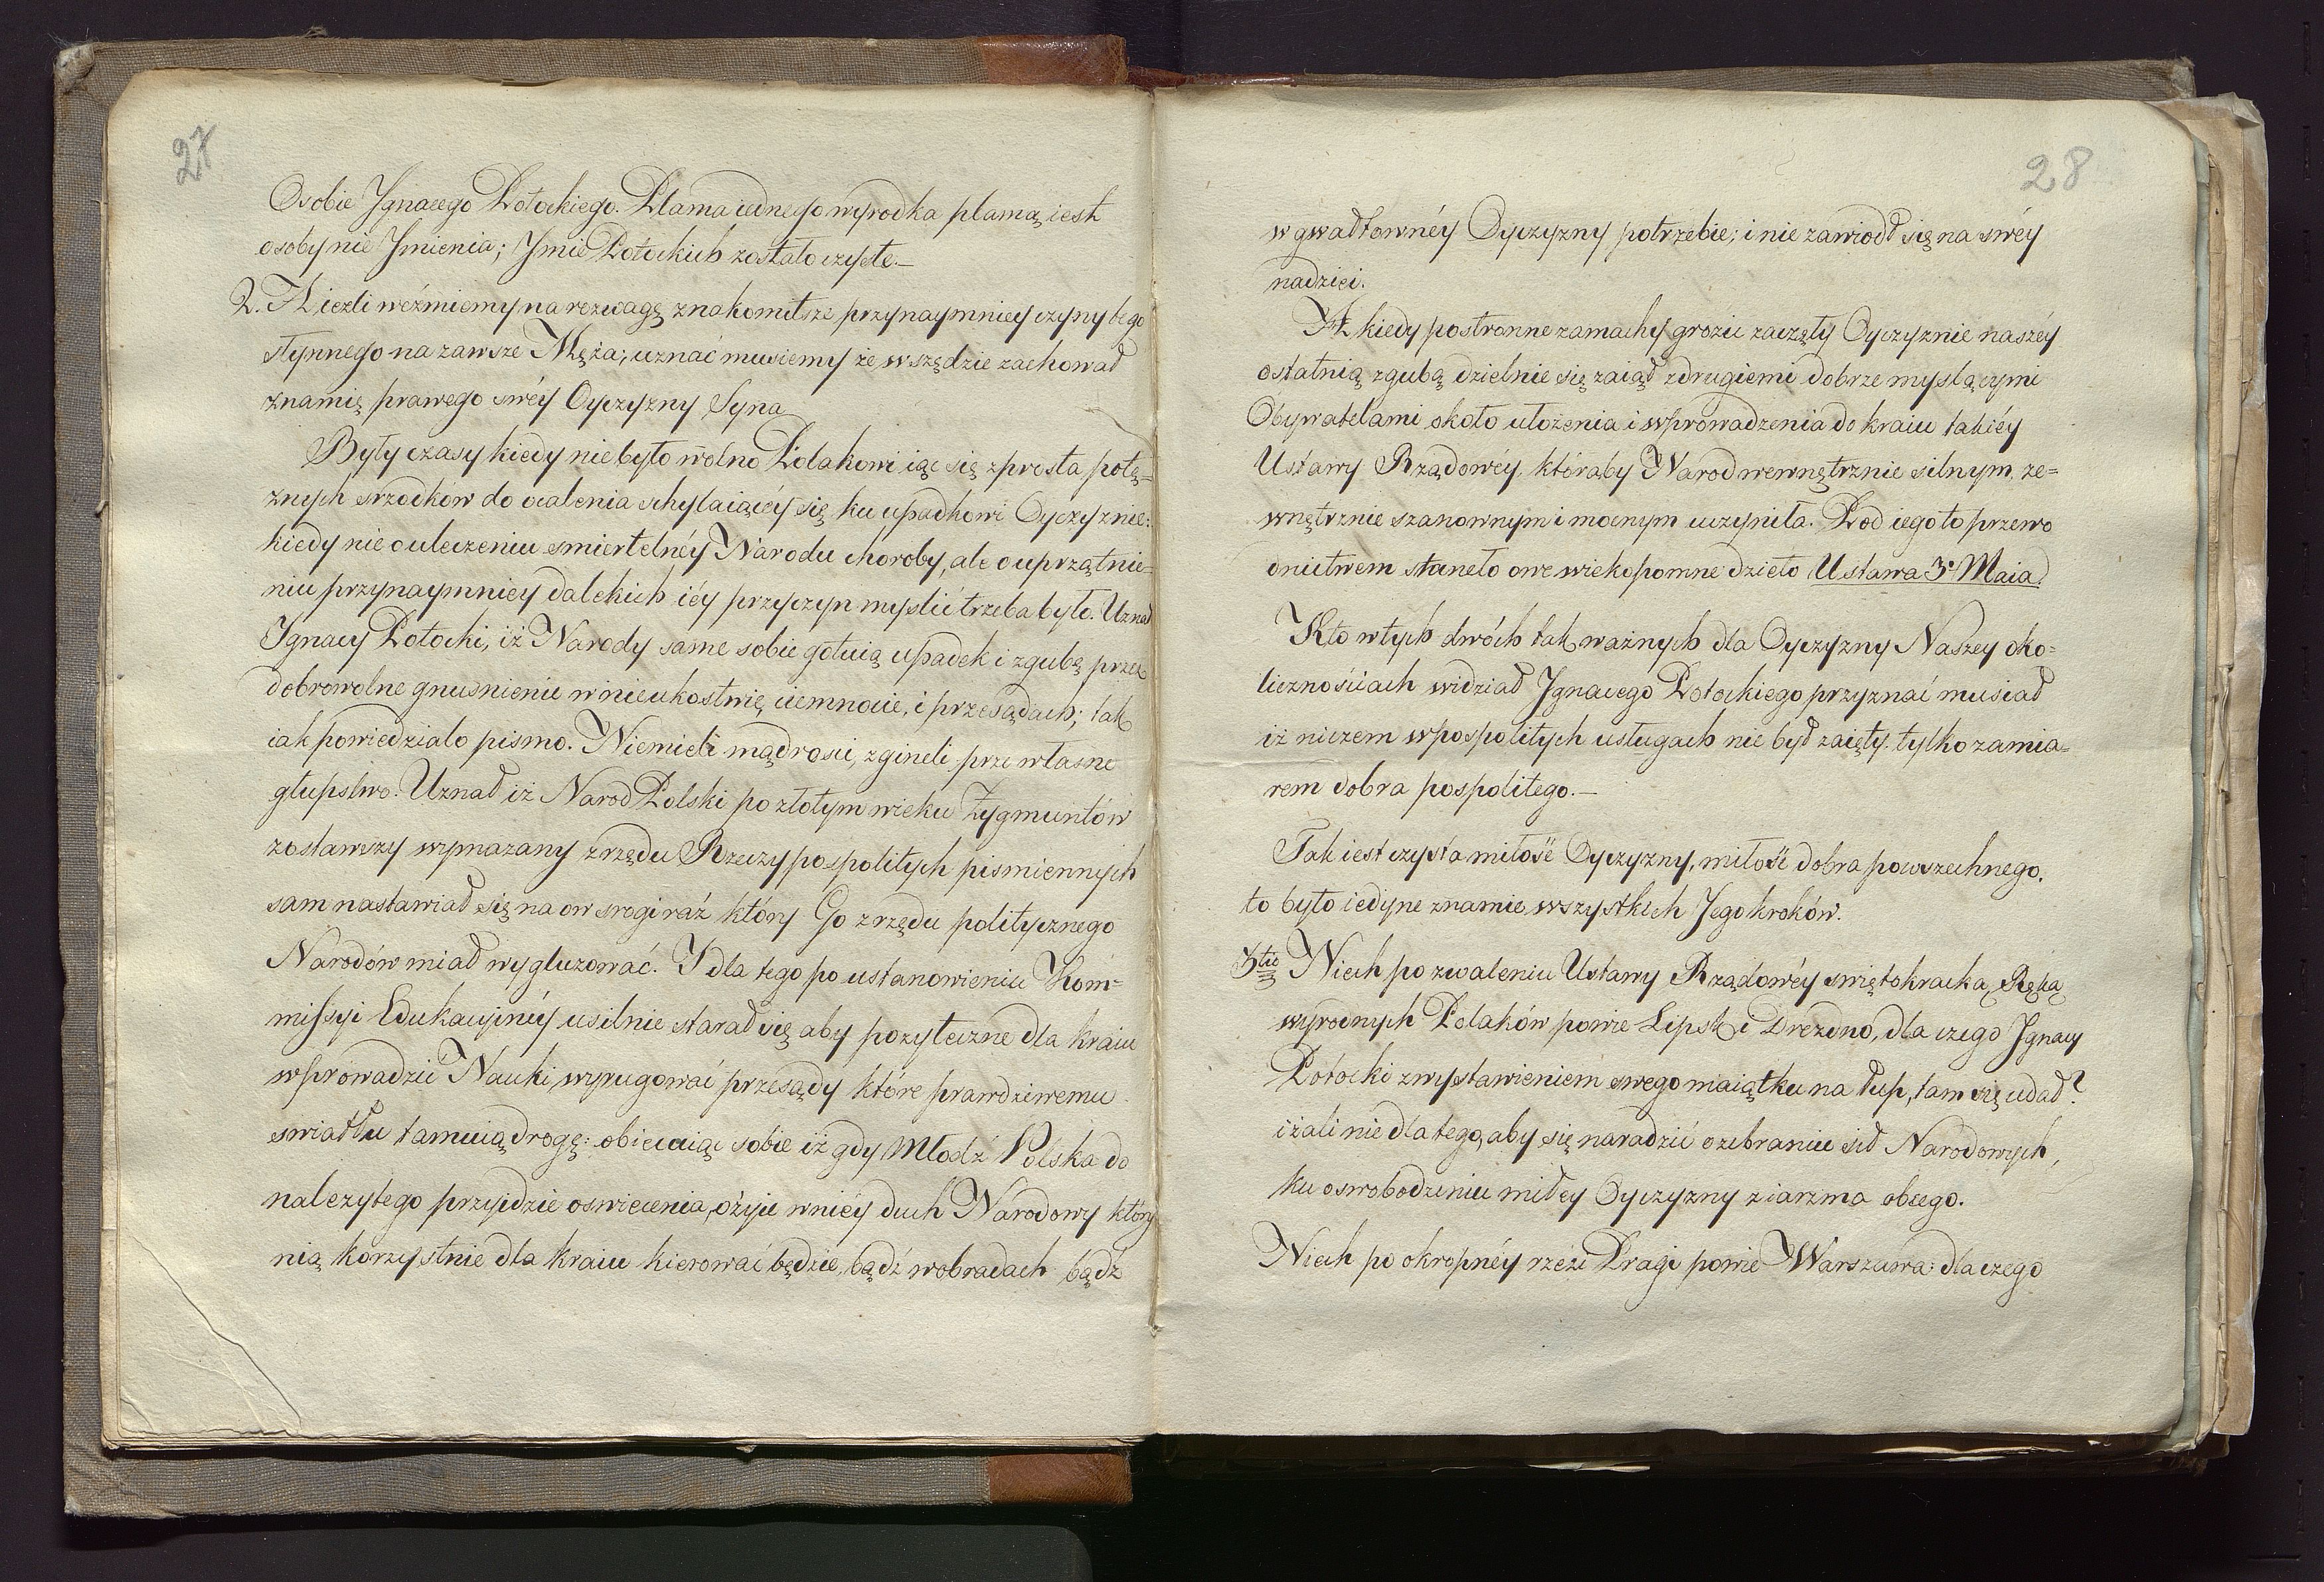 27
Osobie Ignacego Potockiego. Plama iednego wyrodka plamą iest
osoby nie Imienia; Imie Potockich zostało czyste.—
2. A ieżli weźmiemy na rozwagę znakomitsze przynaymniey czyny tego
słynnego na zawsze Męża, uznać musiemy że wszędzie zachował
znamię prawego swéy Oyczyzny Syna
Były czasy kiedy nie było wolno Polakowi iąc się zprosta potę=
żnych srzodków do ocalenia schylaiącéy się ku upadkowi Oyczyznie:
kiedy nie o uleczeniu smiertelnéy Narodu choroby, ale o uprzątnie=
niu przynaymniey dalekich iéy przyczyn myslić trzeba było. Uznał
Ignacy Potocki, iż Narody same sobie gotuią upadek i zgubę przez
dobrowolne gnusnienie w nieukostwie, ciemnocie, i przesądach; tak
iak powiedziało pismo. Niemieli mądrosci, zgineli prze własne
głupstwo. Uznał iż Narod Polski po złotym wieku Zygmuntów
zostawszy wymazany z rzędu Rzeczypospolitych pismiennych
sam nastawiał się na ow srogi raz który Go z rzędu politycznego
Narodów miał wygluzować. I dla tego po ustanowieniu Kom=
missyi Edukacyinéy usilnie starał się aby pozyteczne dla kraiu
wprowadzić Nauki, wyrugować przesądy które prawdziwemu
swiatłu tamuią drogę: obiecuiąc sobie iż gdy Młodź Polska do
nalezytego przyidzie oswiecenia, ożyie w niéy duch Narodowy który
nią korzystnie dla kraiu kierować będzie, bądź w obradach bądź
28
w gwałtownéy Oyczyzny potrzebie; i nie zawiodł się na swéy
nadziei.
A kiedy postronne zamachy grozić zaczęły Oyczyznie naszéy
ostatnią zgubą dzielnie się zaiął z drugiemi dobrze myslącymi
Obywatelami około ułożenia i wprowadzenia do kraiu takiéy
Ustawy Rządowéy, któraby Narod wewnętrznie silnym, ze=
wnętrznie szanownym i mocnym uczyniła. Pod iego to przewo
dnictwem staneło owe wiekopomne dzieło Ustawa 3º Maia.
Kto w tych dwóch tak ważnych dla Oyczyzny Naszey oko=
licznościach widział Ignacego Potockiego przyznać musiał
iż niczem w pospolitych usługach nie był zaięty. tylko zamia=
rem dobra pospolitego.—
Tak iest czysta miłość Oyczyzny, miłość dobra powszechnego,
to było iedyne znamie wszystkich Jego kroków.
3tio Niech po zwaleniu Ustawy Rządowéy swiętokracką Ręką
wyrodnych Polaków powie Lipsk i Drezdno, dla czego Ignacy
Potocki z wystawieniem swego maiątku na łup, tam się udał?
iżali nie dla tego, aby się naradzić o zebraniu sił Narodowych,
ku oswobodzeniu miłey Oyczyzny z iarzma obcego.
Niech po okropnéy rzézi Pragi powie Warszawa: dla czego